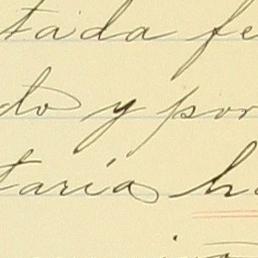 tada fe
do y por
taria h